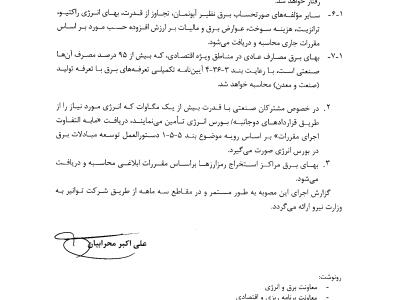 رفتار خواهد شد.
۱-۶- سایر مؤلفه‌های صورتحساب برق نظیر آبونمان، تجاوز از قدرت، بهای انرژی راکتیو،
ترانزیت، هزینه سوخت، عوارض برق و مالیات بر ارزش افزوده حسب مورد بر اساس
مقررات جاری محاسبه و دریافت می‌شود.
۱-۷- بهای برق مصارف عادی در مناطق ویژه اقتصادی، که بیش از ۹۵ درصد مصرف آن‌ها
صنعتی است، با رعایت بند ۳-۳۶-۴ آیین‌نامه تکمیلی تعرفه‌های برق با تعرفه تولید
(صنعت و معدن) محاسبه خواهد شد.
۲. در خصوص مشترکان صنعتی با قدرت بیش از یک مگاوات که انرژی مورد نیاز را از
طریق قراردادهای دوجانبه/ بورس انرژی تأمین می‌نمایند، دریافت «مابه التفاوت
اجرای مقررات» بر اساس رویه موضوع بند ۵-۵-۱ دستورالعمل توسعه مبادلات برق
در بورس انرژی صورت می‌گیرد.
۳. بهای برق مراکز استخراج رمزارزها براساس مقررات ابلاغی محاسبه و دریافت
می‌شود.
گزارش اجرای این مصوبه به طور مستمر و در مقاطع سه ماهه از طریق شرکت توانیر به
وزارت نیرو ارائه می‌گردد.
علی اکبر محرابیان
رونوشت:
- معاونت برق و انرژی
- معاونت برنامه ریزی و اقتصادی